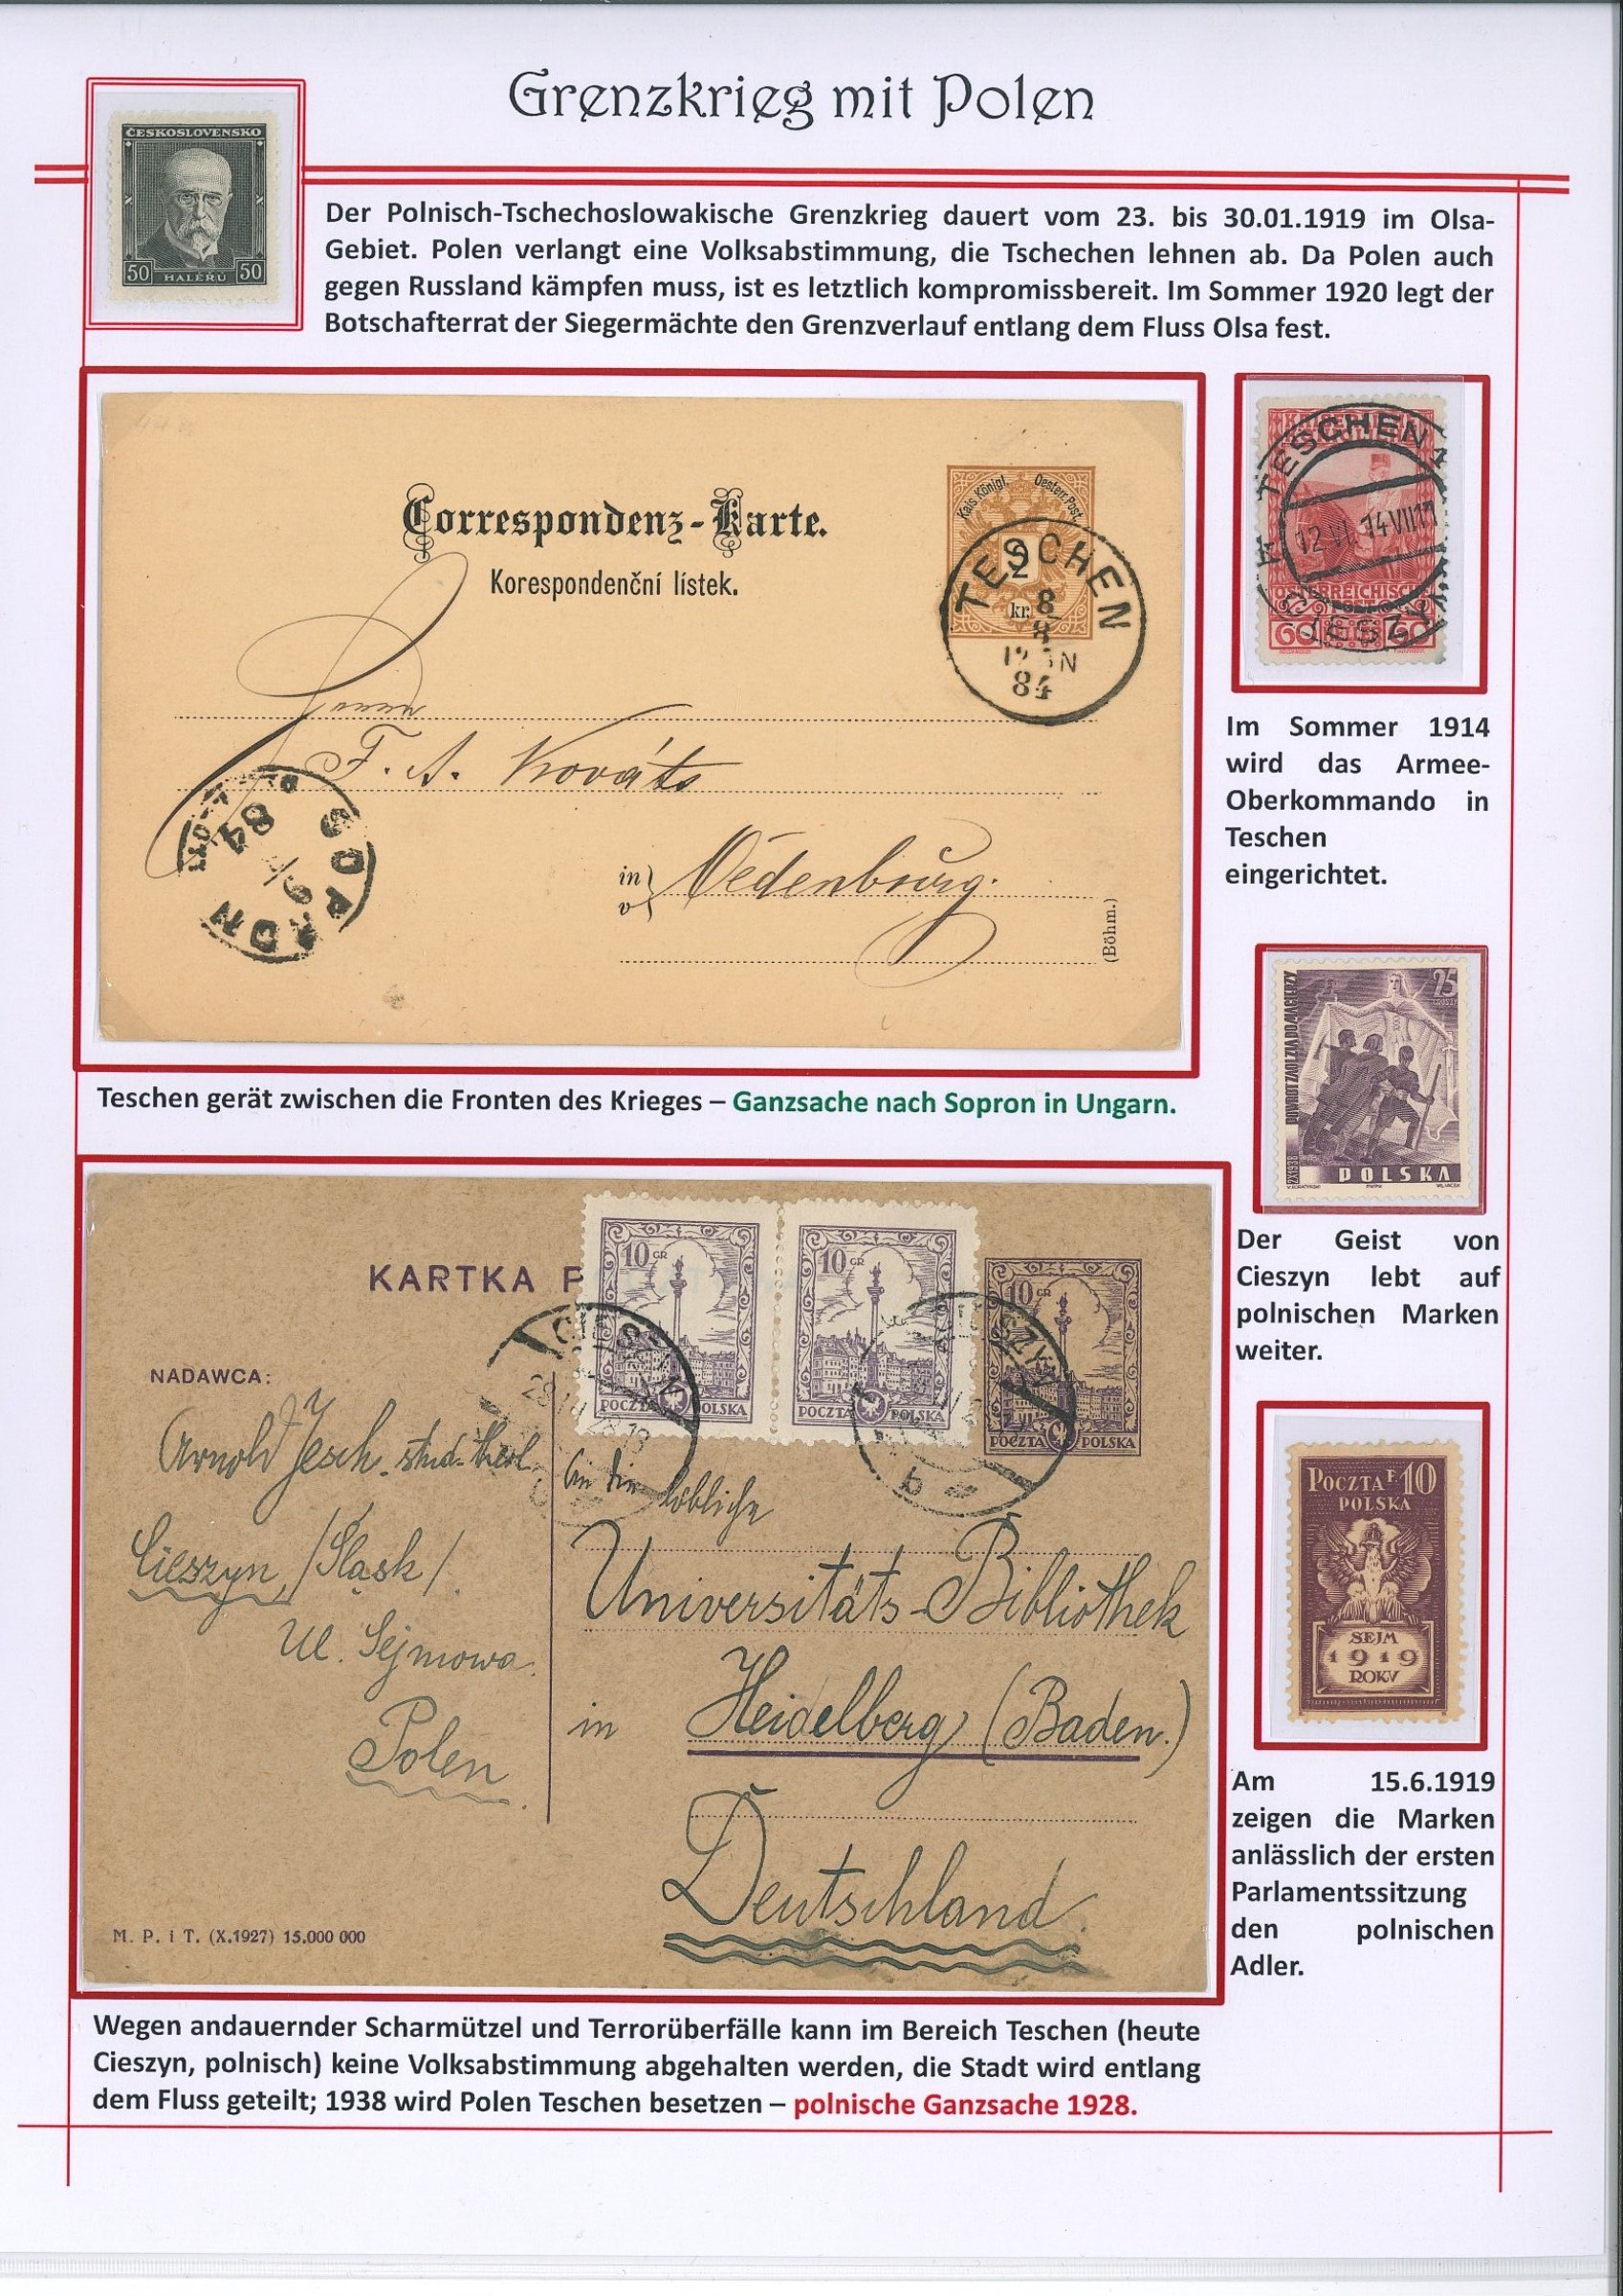 Grenzkrieg mit Polen
ČESKOSLOVENSKO
50 HALÉŘŮ 50
Der Polnisch-Tschechoslowakische Grenzkrieg dauert vom 23. bis 30.01.1919 im Olsa-
Gebiet. Polen verlangt eine Volksabstimmung, die Tschechen lehnen ab. Da Polen auch
gegen Russland kämpfen muss, ist es letztlich kompromissbereit. Im Sommer 1920 legt der
Botschafterrat der Siegermächte den Grenzverlauf entlang dem Fluss Olsa fest.
Correspondenz-Karte.
Korespondenční lístek.
Kais. Königl. Oesterr. Post.
2
kr.
TESCHEN
8
8
84
Herrn
F. A. Kováts
in
v
Oedenburg.
(Böhm.)
SOPRON
84
Teschen gerät zwischen die Fronten des Krieges – Ganzsache nach Sopron in Ungarn.
TESCHEN 1
12 VI 14 VII
ÖSTERREICHISCHE
CIESZYN
60 60
Im Sommer 1914
wird das Armee-
Oberkommando in
Teschen
eingerichtet.
25
GROSZY
POWRÓT ZAOLZIA DO MACIERZY
2X1938
POLSKA
Der Geist von
Cieszyn lebt auf
polnischen Marken
weiter.
KARTKA P
10 GR
POCZTA POLSKA
10 GR
POCZTA POLSKA
10 GR
POCZTA POLSKA
CIESZYN
CIESZYN
b
NADAWCA:
Arnold Jesch. stud. theol.
Cieszyn /Śląsk/.
Ul. Sejmowa.
Polen.
An die löbliche
Universitäts-Bibliothek
in Heidelberg (Baden.)
Deutschland.
M. P. i T. (X.1927) 15.000 000
POCZTA F. 10
POLSKA
SEJM
1919
ROKU
Am 15.6.1919
zeigen die Marken
anlässlich der ersten
Parlamentssitzung
den polnischen
Adler.
Wegen andauernder Scharmützel und Terrorüberfälle kann im Bereich Teschen (heute
Cieszyn, polnisch) keine Volksabstimmung abgehalten werden, die Stadt wird entlang
dem Fluss geteilt; 1938 wird Polen Teschen besetzen – polnische Ganzsache 1928.